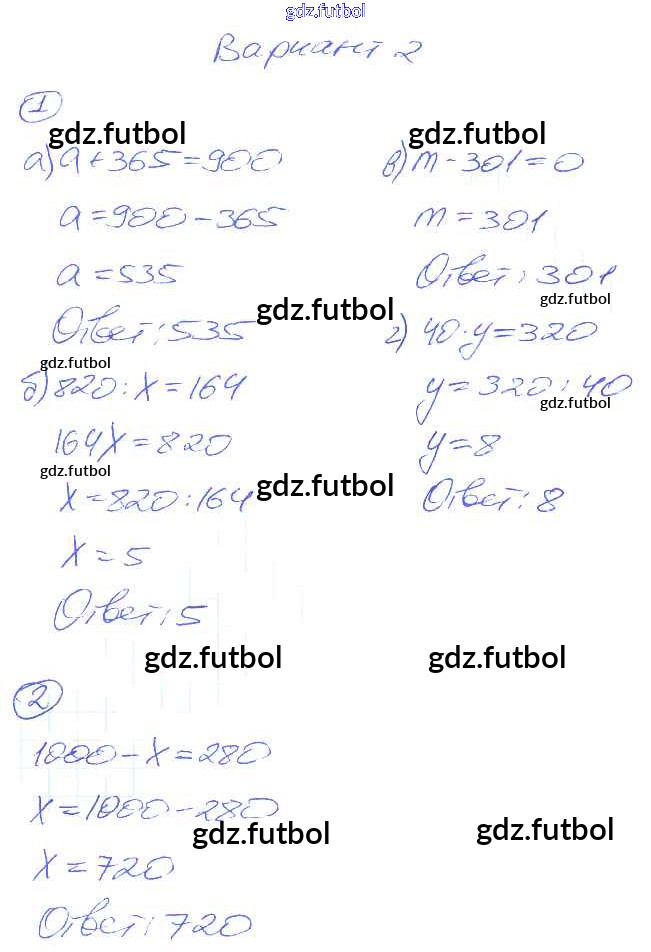 gdz.futbol
Вариант 2
1
gdz.futbol
а) a + 365 = 900
a = 900 - 365
a = 535
gdz.futbol
Ответ: 535
gdz.futbol
б) 820 : x = 164
164x = 820
gdz.futbol
gdz.futbol
x = 820 : 164
x = 5
Ответ: 5
gdz.futbol
в) m - 301 = 0
m = 301
Ответ: 301
gdz.futbol
г) 40 · y = 320
y = 320 : 40
gdz.futbol
y = 8
Ответ: 8
gdz.futbol
gdz.futbol
2
1000 - x = 280
x = 1000 - 280
gdz.futbol
gdz.futbol
x = 720
Ответ: 720